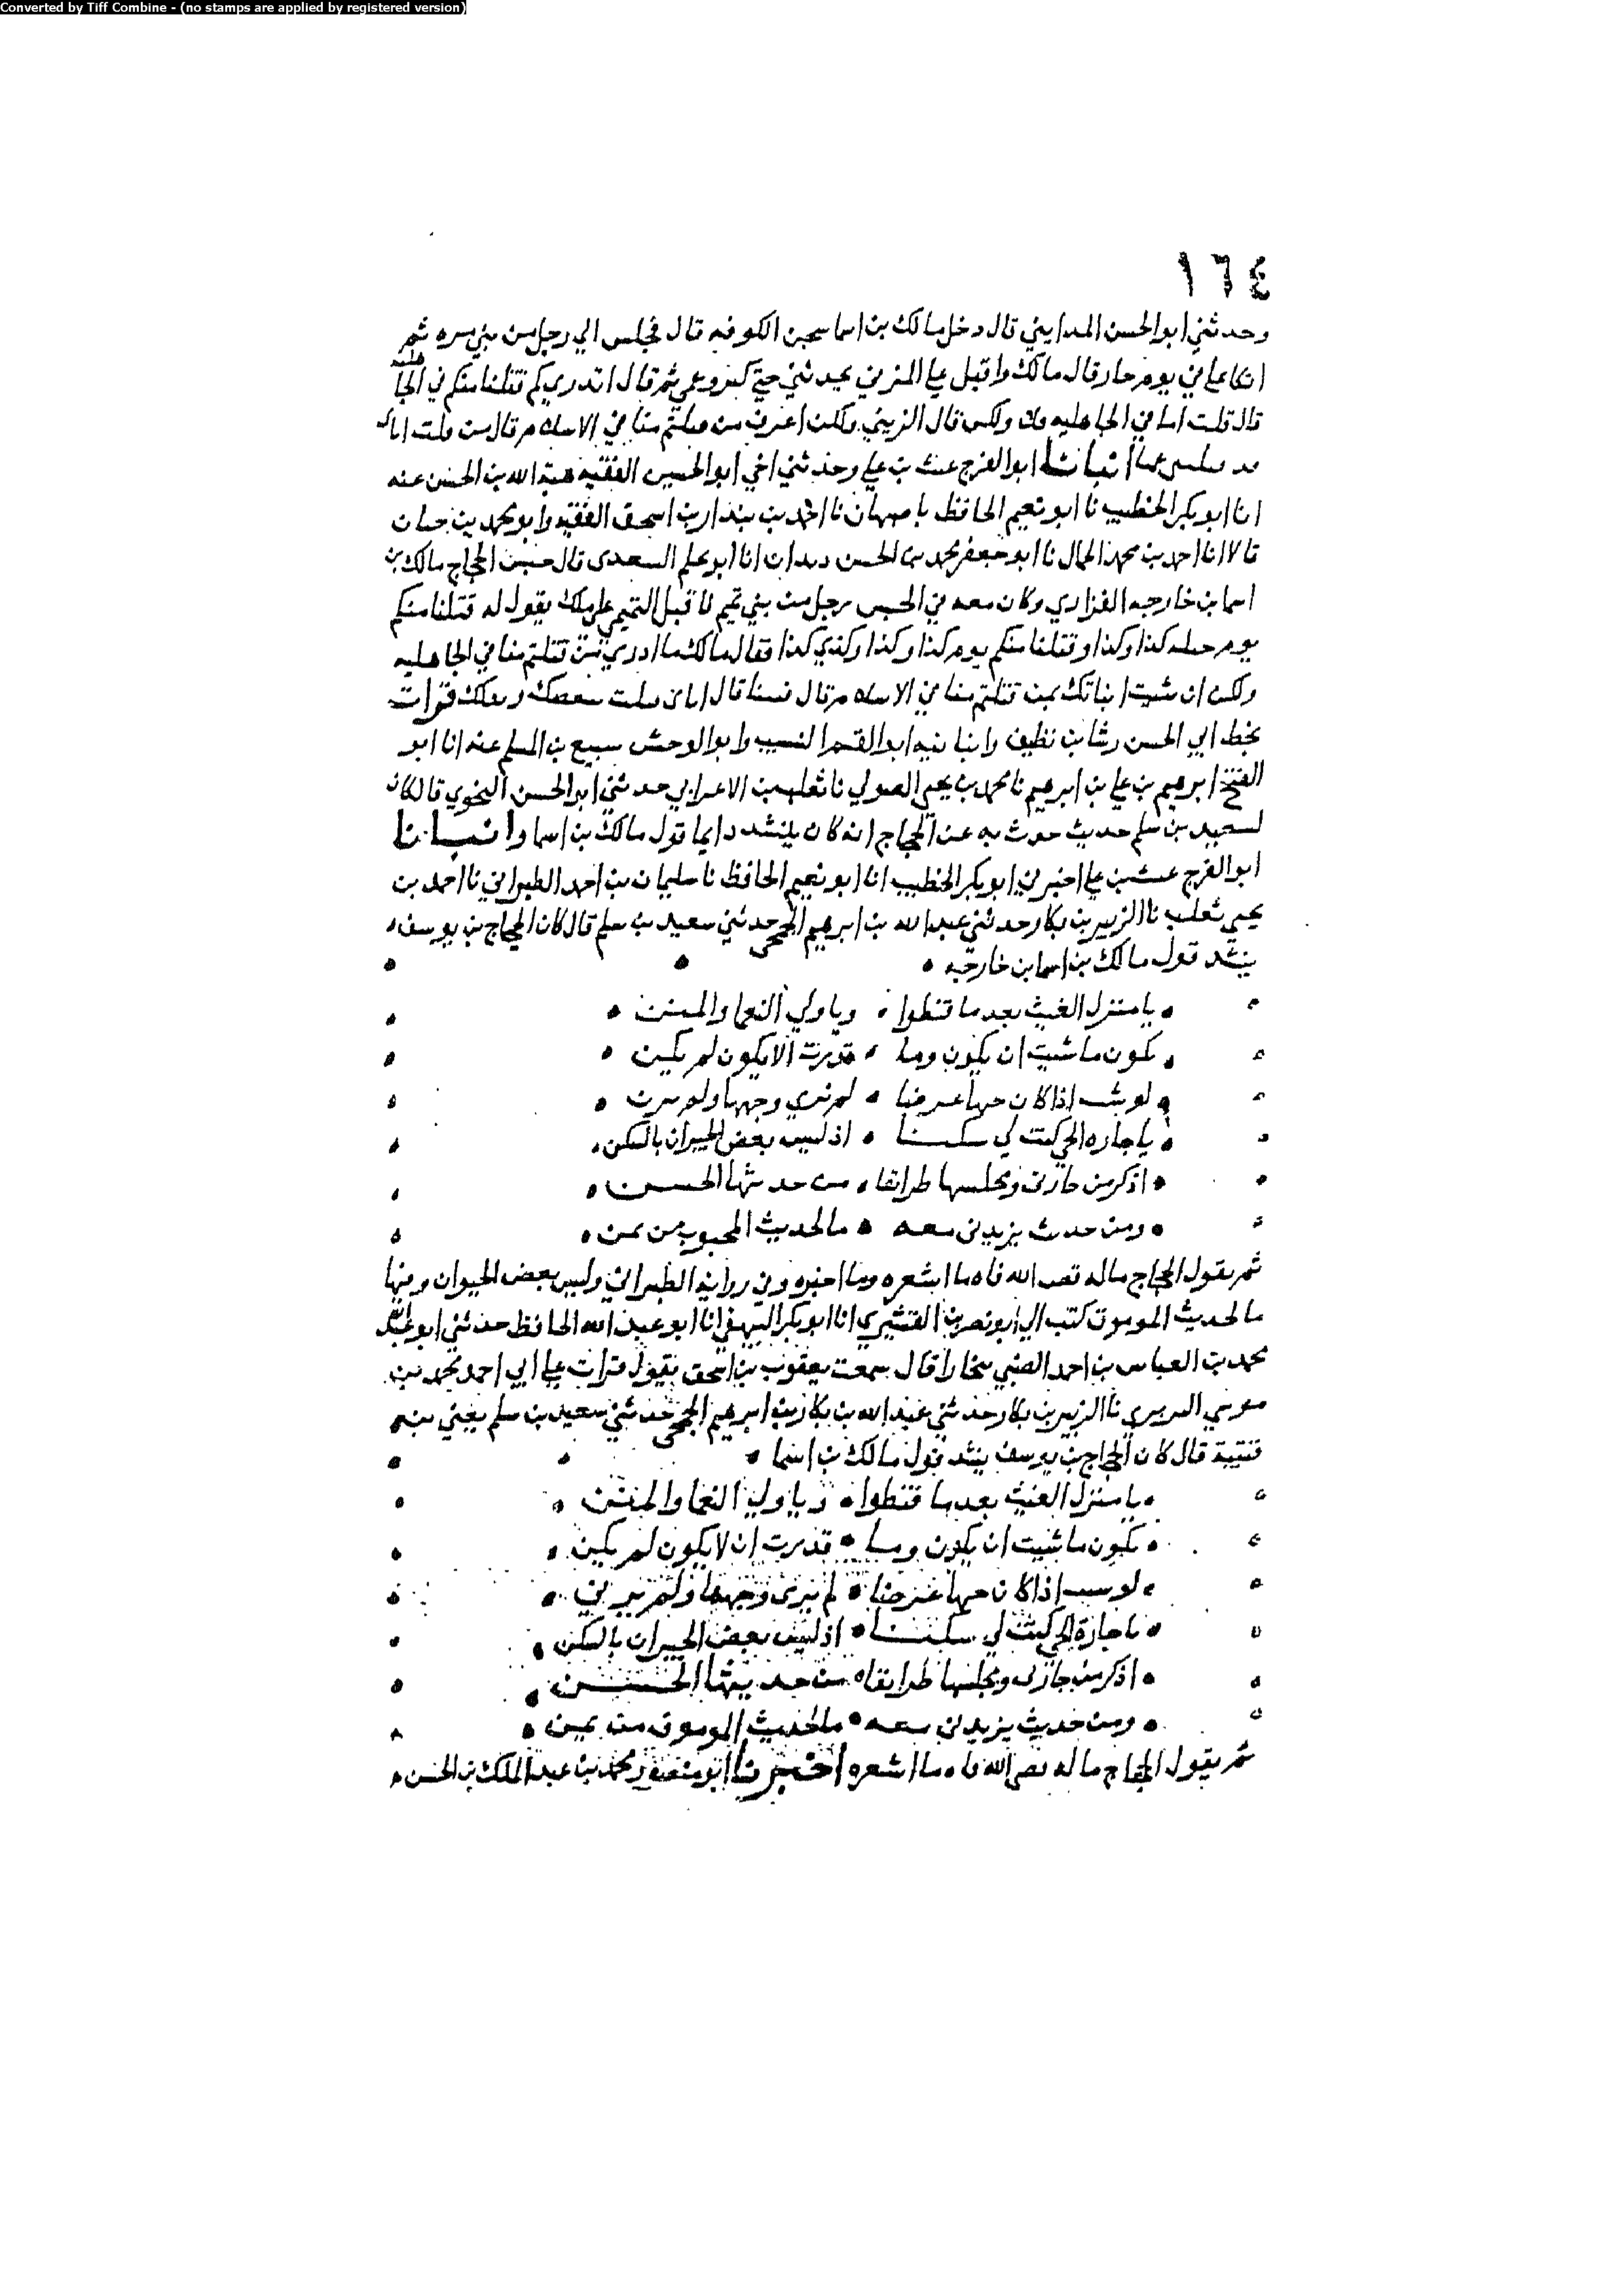 Converted by Tiff Combine - (no stamps are applied by registered version)
١٦٤
وحدثني ابو الحسن المدايني قال دخل مالك بن اسما سجن الكوفه قال فجلس الي رجل من بني مره ثم
اتكا علي في يوم حار قال مالك واقبل علي المزني يحدثني حتي كثر وعمي ثم قال اتدري كم قتلنا منكم في الجاهليه
قال قلت اما في الجاهليه ولكن اعرف من قتلتم منا في الاسلام قال من قلت انا
انبانا ابو الفرج غيث بن علي وحدثني اخي ابو الحسين الفقيه هبة الله بن الحسن عنه
انا ابو بكر الخطيب نا ابو نعيم الحافظ باصبهان نا احمد بن بندار بن اسحق الفقيه وابو محمد بن حيان
قالا انا احمد بن محمد الجمال نا ابو جعفر محمد بن الحسن انا ابو محلم السعدي قال حبس الحجاج مالك بن
اسما بن خارجه الفزاري وكان معه في الحبس رجل من بني تميم فاقبل التميمي علي مالك يقول له قتلنا منكم
يوم كذا وكذا وقتلنا منكم يوم كذا وكذا وكذي كذا فقال مالك ما ادري من قتلتم منا في الجاهليه
ولكن ان شيت انباتك بمن قتلتم منا في الاسلام قال قال انا قرات
بخط ابي الحسن رشا بن نظيف وانبانيه ابو القسم النسيب وابو الوحش سبيع بن المسلم عنه انا ابو
الفتح ابرهيم بن علي بن ابرهيم نا محمد بن يحيي الصولي نا ثعلب الاعرابي حدثني ابو الحسن النحوي قال كان
لسعيد بن سلم حديث حدث به عن الحجاج انه كان ينشد دايما قول مالك بن اسما وانبانا
ابو الفرج غيث بن علي اخبرني ابو بكر الخطيب انا ابو نعيم الحافظ نا سليمان بن احمد الطبراني نا احمد بن
يحيي ثعلب نا الزبير بن بكار حدثني عبد الله بن ابرهيم الجمحي حدثني سعيد بن سلم قال كان الحجاج بن يوسف
ينشد قول مالك بن اسما بن خارجه
يا منزل الغيث بعد ما قنطوا ويا ولي النعما والمنن
يكون ما شيت ان يكون وما قدرت الا يكون لم يكن
لو شيت اذا كان حبها عرضا لم تري وجهها ولم ترن
يا جاره الحي كنت لي سكنا اذ ليس بعض الجيران بالسكن
اذكر من جارتي ومجلسها طرايفا من حديثها الحسن
ومن حديث يزيدني مقه ما لحديث المحبوب من ثمن
ثم يقول الحجاج ما له فض الله فاه ما اشعره وما اخبره وفي رواية الطبراني وليس بعض الحيوان وفيها
ما لحديث الموموق كتب الي ابو نصر بن القشيري انا ابو بكر البيهقي انا ابو عبد الله الحافظ حدثني ابو عبد الله
محمد بن العباس بن احمد الضبي بخارا قال سمعت يعقوب بن اسحق يقول قرات علي ابي احمد محمد بن
موسي البربري نا الزبير بن بكار حدثني عبد الله بن بكار بن ابرهيم الجمحي حدثني سعيد بن سلم يعني بن
قتيبة قال كان الحجاج بن يوسف ينشد قول مالك بن اسما
يا منزل الغيث بعد ما قنطوا ويا ولي النعما والمنن
يكون ما شيت ان يكون وما قدرت ان لا يكون لم يكن
لو شيت اذا كان حبها عرضا لم ترى وجهها ولم ترني
يا جارة الحي كنت لي سكنا اذ ليس بعض الجيران بالسكن
اذكر من جارتي ومجلسها طرايفا من حديثها الحسن
ومن حديث يزيدني مقه ما لحديث الموموق من ثمن
ثم يقول الحجاج ما له فض الله فاه ما اشعره اخبرنا ابو منصور محمد بن عبد الملك بن الحسن